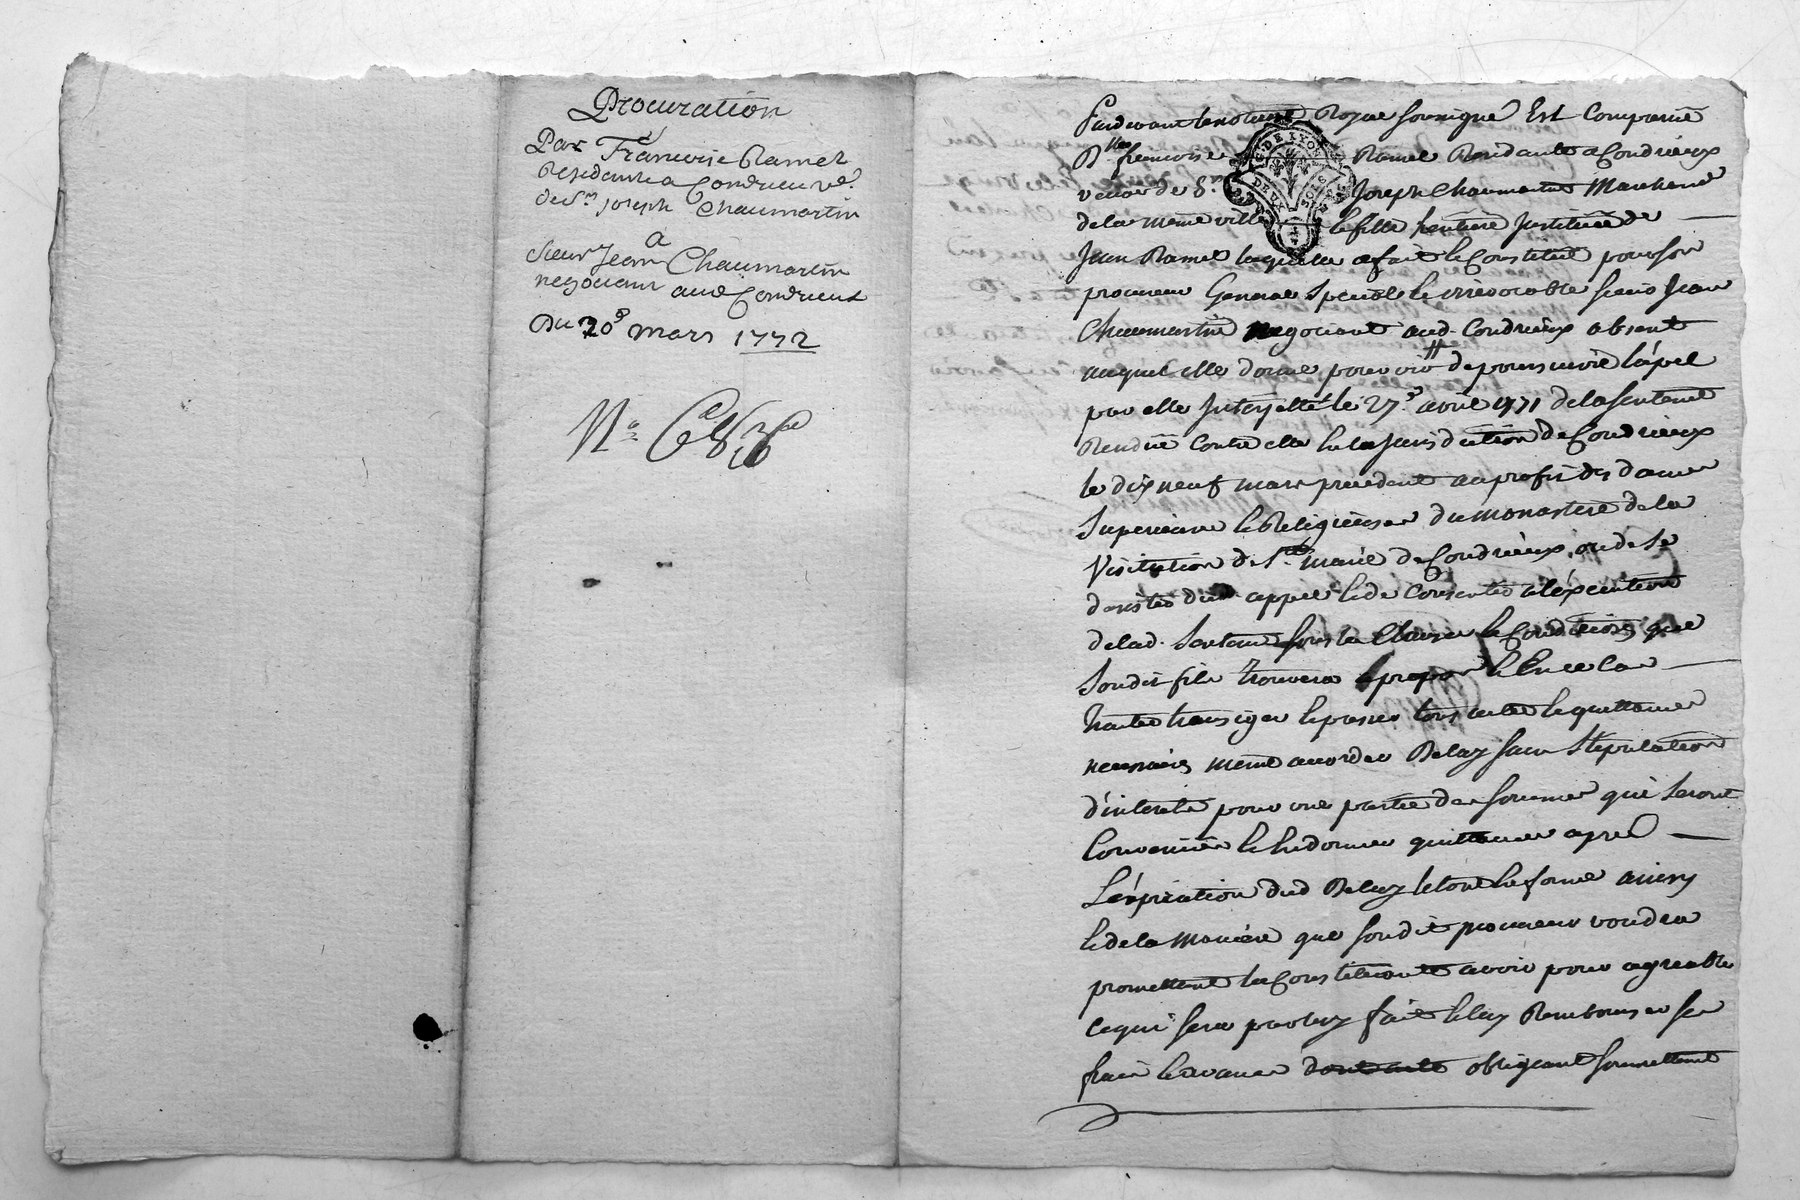 Procuration
Par Francoise Ramel
Residante a Condrieu ve.
de Sr. joseph Chaumartin
a
sieur Jean Chaumartin
negociant aud Condrieux
Du 20e mars 1772
Pardevant le notaire Royal soussigné Est Comparue
Dlle francoise Ramel Residante a Condrieux
veuve de Sr. Joseph Chaumartin Marchand
de la meme ville & fille heritiere Instituée de
Jean Ramel laquelle a fait & Constitué pour son
procureur General Special & irrévocable sieur Jean
Chaumartin negociant aud. Condrieux absent
auquel elle donne pouvoir de poursuivre l'apel
par elle Interjetté le 27e. avril 1771 de la sentence
Rendue Contre elle en la Jurisdiction de Condrieux
le dix neuf mars precedent au profit des dames
Superieure & Religieuses du monastere de la
Visitation de Ste. marie de Condrieux, ou de se
desister dud appel & de Consentir a l'éxecution
de lad. Sentence sous les Clauses & Conditions que
Sondit fils trouvera apropos & En ce Cas
traiter transiger & passer tous actes & quittances
necessaires même accorder Delay sans Stipulation
d'interets pour une partie des sommes qui seront
Convenües & en donner quittance après
L'expiration dud Delay le tout en forme
& de la maniere que sondit procureur voudra
promettant la Constituante avoir pour agreable
ce qui sera par luy fait & luy Rembourser ses
frais & avances obligeant soumettant